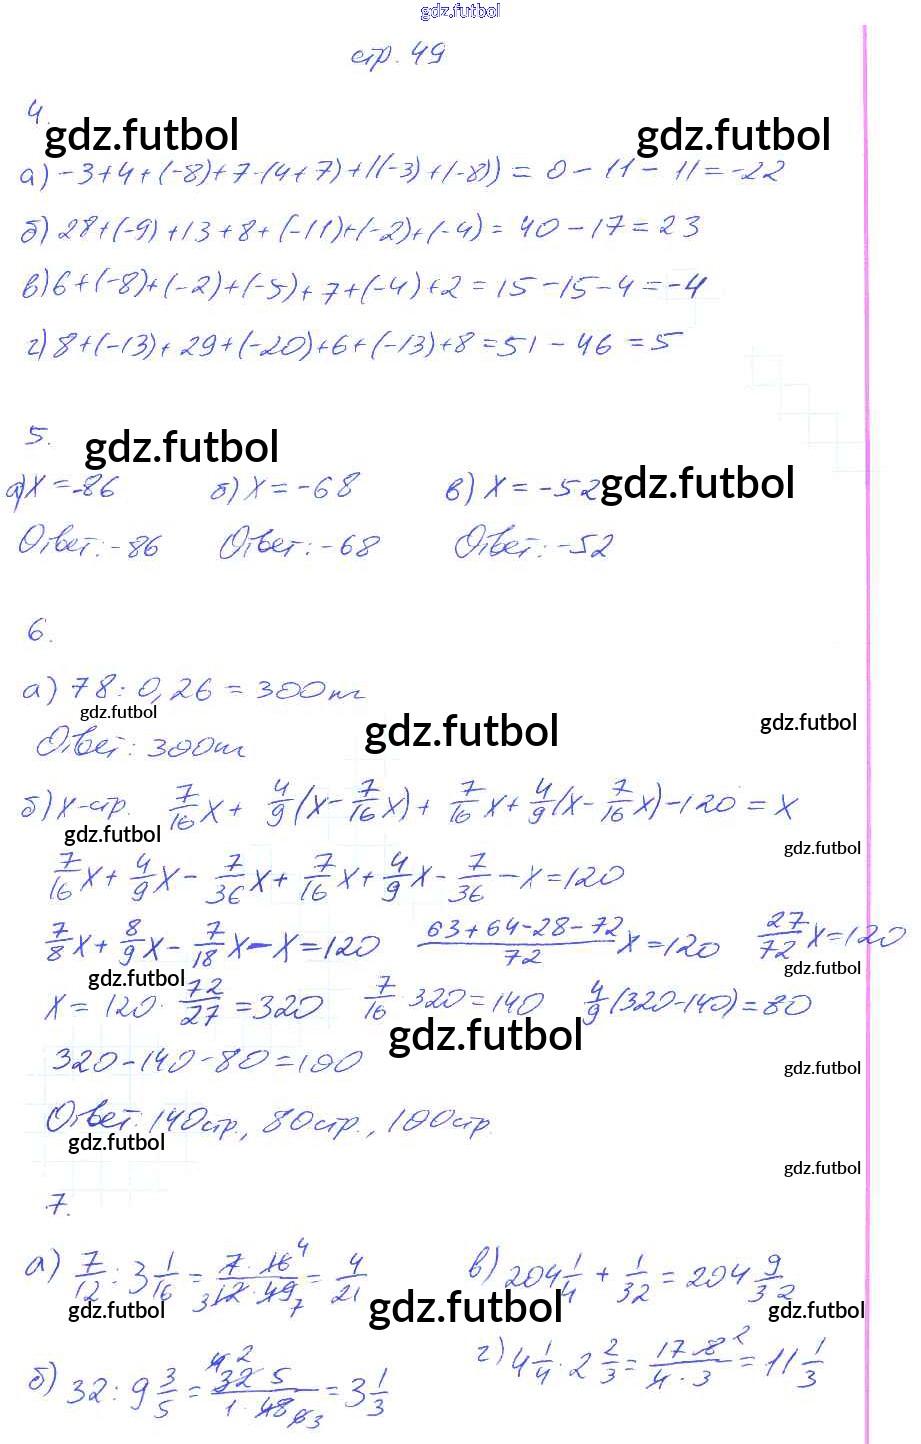 gdz.futbol
стр. 49
4.
gdz.futbol gdz.futbol
а) -3+4+(-8)+7-(4+7)+((-3)+(-8)) = 0-11-11=-22
б) 28+(-9)+13+8+(-11)+(-2)+(-4)=40-17=23
в) 6+(-8)+(-2)+(-5)+7+(-4)+2=15-15-4=-4
г) 8+(-13)+29+(-20)+6+(-13)+8=51-46=5
5.
gdz.futbol
а) X=-86 б) X=-68 в) X=-52 gdz.futbol
Ответ: -86 Ответ: -68 Ответ: -52
6.
а) 78:0,26=300т
gdz.futbol gdz.futbol gdz.futbol
Ответ: 300т
б) X-стр. 7/16 X + 4/9 (X - 7/16 X) + 7/16 X + 4/9 (X - 7/16 X) - 120 = X
gdz.futbol gdz.futbol
7/16 X + 4/9 X - 7/36 X + 7/16 X + 4/9 X - 7/36 - X = 120
7/8 X + 8/9 X - 7/18 X - X = 120 63+64-28-72/72 X = 120 27/72 X = 120
gdz.futbol gdz.futbol
X = 120 · 72/27 = 320 7/16 · 320 = 140 4/9 (320-140) = 80
gdz.futbol
320-140-80=100
gdz.futbol
Ответ: 140стр., 80стр., 100стр.
gdz.futbol gdz.futbol
7.
а) 7/12 : 3 1/16 = 7·16 4/3 12·49 7 = 4/21 в) 204 1/4 + 1/32 = 204 9/32
gdz.futbol gdz.futbol gdz.futbol
б) 32 : 9 3/5 = 4 2 32 5/1·48 6 3 = 3 1/3 г) 4 1/4 · 2 2/3 = 17·8 2/4·3 = 11 1/3